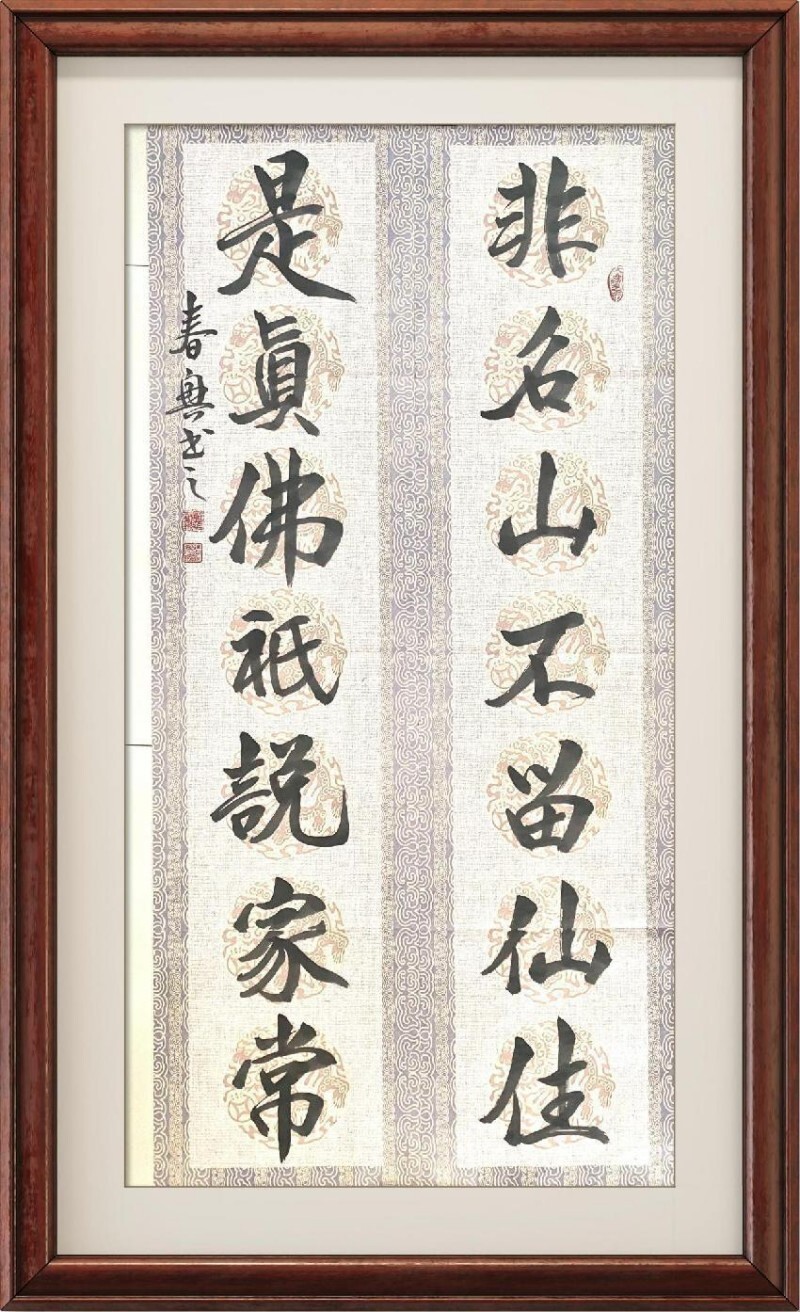 非名山不留仙住
是眞佛祇説家常
春興书之